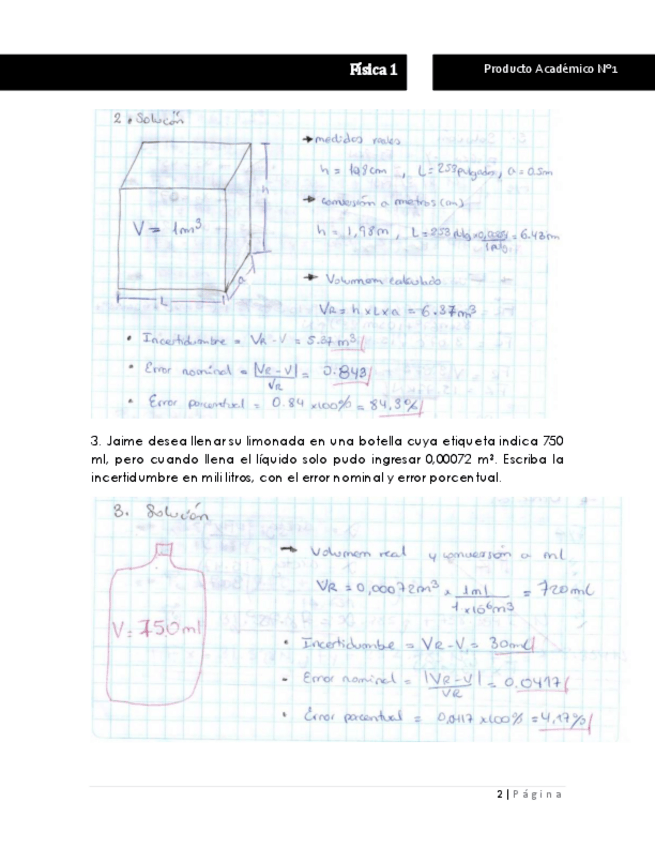 Física 1
Producto Académico Nº1
2. Solución
→ medidas reales
h = 198cm, L = 253 pulgadas, a = 0.5m
→ conversión a metros (m)
V = 1m³
h
h = 1,98m, L = 253 pulg x 0,0254 = 6.43m
1 pulg.
a
L
→ Volumen calculado
VR = h x L x a = 6.37m³
• Incertidumbre = VR - V = 5.37 m³
• Error nominal = |VR - V| = 0.843
VR
• Error porcentual = 0.84 x100% = 84,3%
3. Jaime desea llenar su limonada en una botella cuya etiqueta indica 750
ml, pero cuando llena el líquido solo pudo ingresar 0,00072 m³. Escriba la
incertidumbre en mililitros, con el error nominal y error porcentual.
3. Solución
→ Volumen real y conversión a ml
VR = 0,00072m³ x 1ml = 720ml
1x10⁶m³
V = 750ml
• Incertidumbre = VR - V = 30ml
- Error nominal = |VR - V| = 0.0417
VR
• Error porcentual = 0,0417 x100% = 4,17%
2 | Página